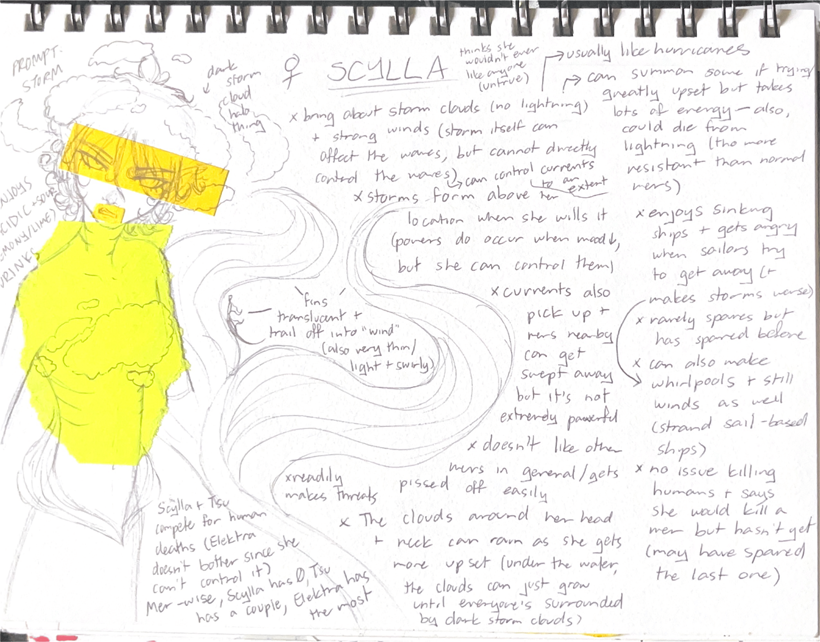 PROMPT:
STORM
dark
storm
cloud
halo
thing
♀ SCYLLA
thinks she
wouldn't ever
like anyone
(untrue)
→ usually like hurricanes
x bring about storm clouds (no lightning)
+ strong winds (storm itself can
affect the waves, but cannot directly
control the waves)
→ can control currents
to an
extent
→ can summon some if trying/
greatly upset but takes
lots of energy — also,
could die from
lightning (tho more
resistant than normal
mers)
x storms form above her
location when she wills it
(powers do occur when moody,
but she can control them)
ENJOYS
ACIDIC + SOUR
LEMONY/LIME/
DRINKS
"fins"
translucent +
trail off into "wind"
(also very thin/
light + swirly)
x currents also
pick up +
mers nearby
can get
swept away
but it's not
extremely powerful
x doesn't like other
mers in general/gets
pissed off easily
x readily
makes threats
x The clouds around her head
+ neck can rain as she gets
more upset (under the water,
the clouds can just grow
until everyone's surrounded
by dark storm clouds)
Scylla + Tsu
compete for human
deaths (Elektra
doesn't bother since she
can't control it)
Mer-wise, Scylla has 0, Tsu
has a couple, Elektra has
the most
x enjoys sinking
ships + gets angry
when sailors try
to get away (+
makes storms worse)
x rarely spares but
has spared before
x can also make
whirlpools + still
winds as well
(strand sail-based
ships)
x no issue killing
humans + says
she would kill a
mer but hasn't yet
(may have spared
the last one)